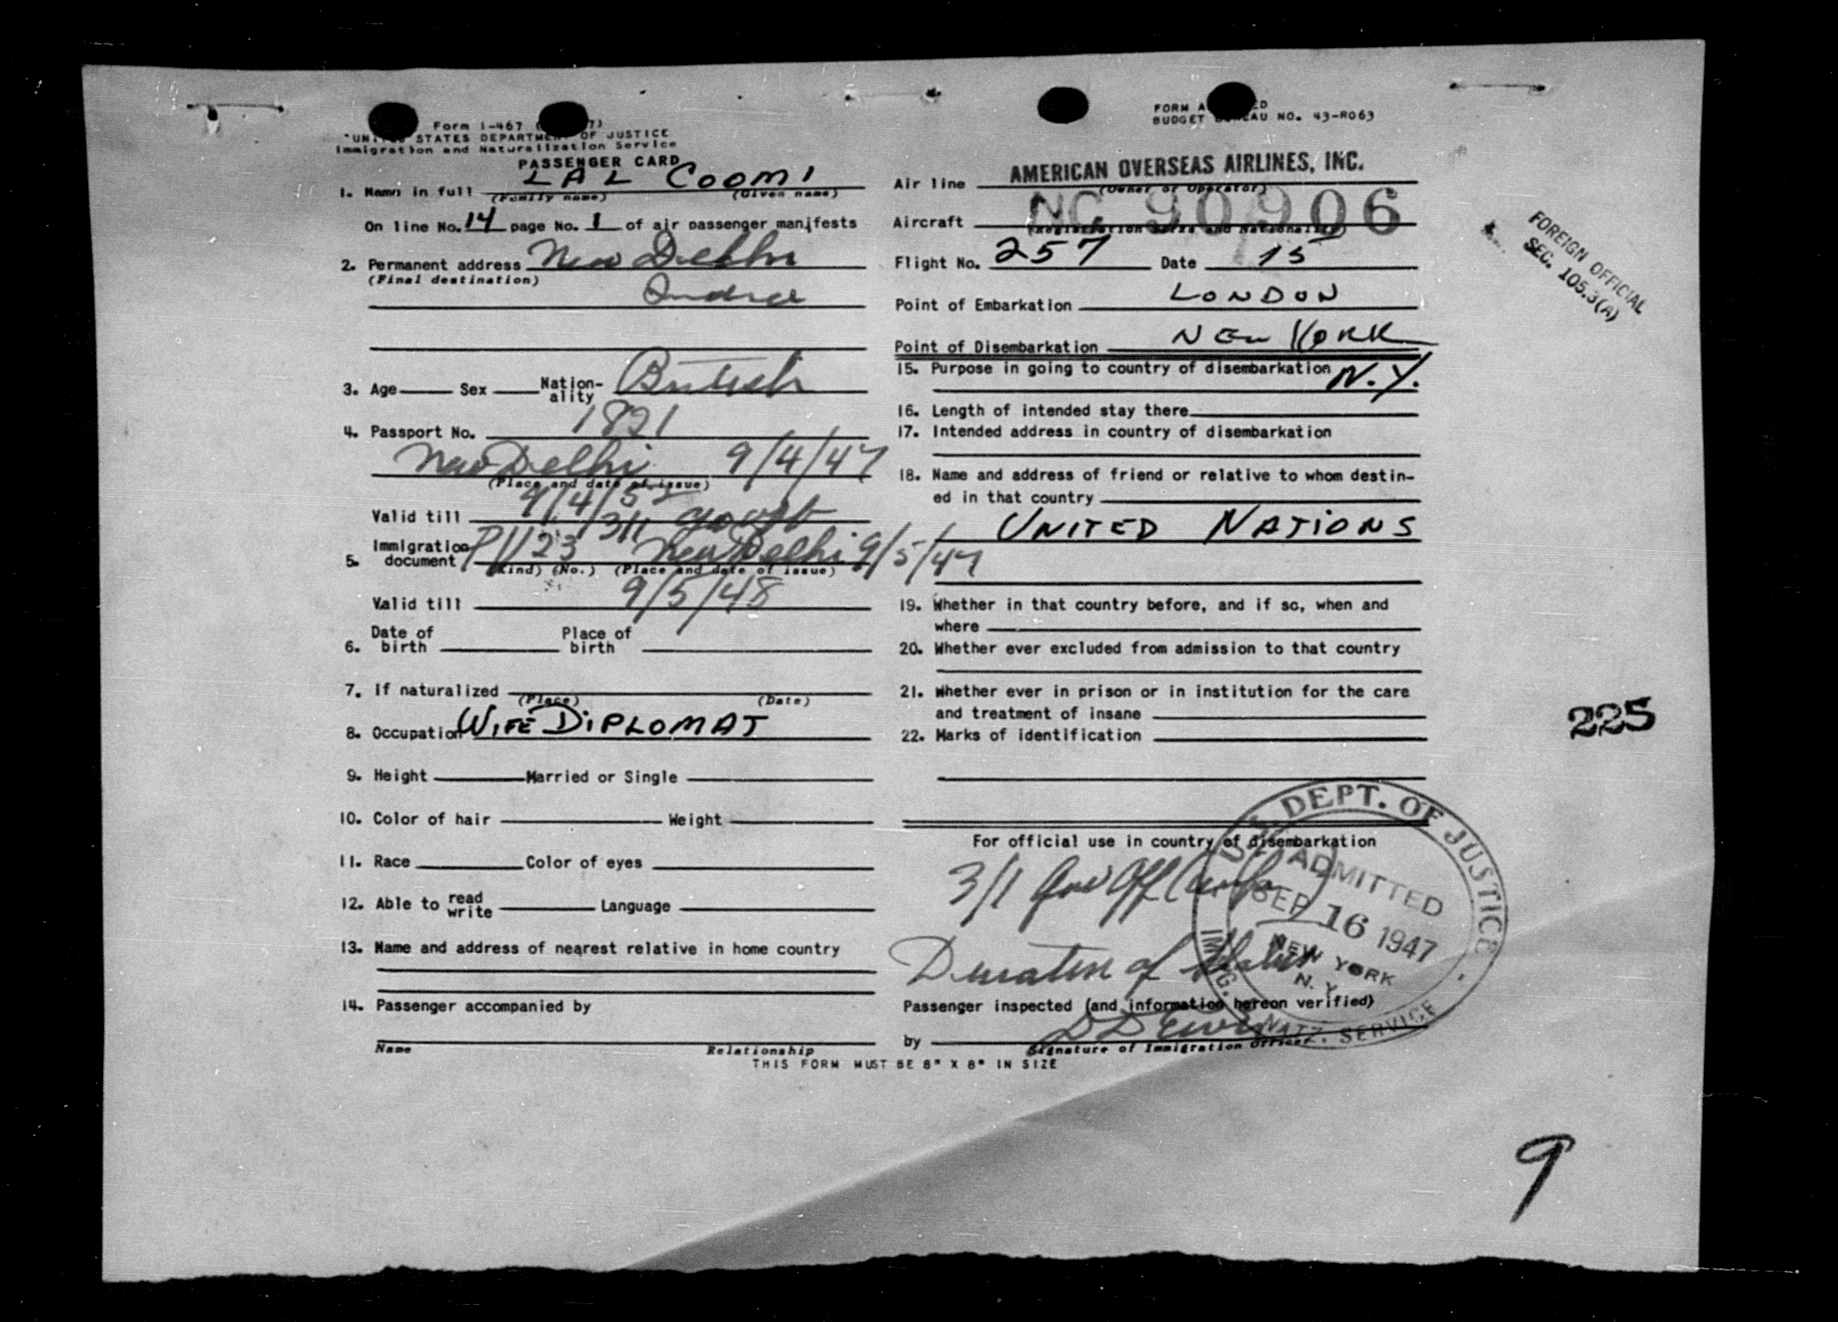 Form I-467
UNITED STATES DEPARTMENT OF JUSTICE
Immigration and Naturalization Service
PASSENGER CARD
1. Name in full LAL COOMI
(Family name) (Given name)
On line No. 14 page No. 1 of air passenger manifests
2. Permanent address New Delhi
(Final destination) India
3. Age Sex Nation-ality British
4. Passport No. 1821
New Delhi 9/4/47
(Place and date of issue)
Valid till 9/4/52
3/1 govt
5. Immigration document PV 23 New Delhi 9/5/47
(Kind) (No.) (Place and date of issue)
Valid till 9/5/48
6. Date of birth Place of birth
7. If naturalized
(Place) (Date)
8. Occupation WIFE DIPLOMAT
9. Height Married or Single
10. Color of hair Weight
11. Race Color of eyes
12. Able to read write Language
13. Name and address of nearest relative in home country
14. Passenger accompanied by
Name Relationship
THIS FORM MUST BE 8" X 8" IN SIZE
FORM A ED
BUDGET BUREAU NO. 43-R063
Air line AMERICAN OVERSEAS AIRLINES, INC.
(Owner or Operator)
Aircraft NC 90906
(Registration Marks and Nationality)
Flight No. 257 Date 15
Point of Embarkation LONDON
Point of Disembarkation NEW YORK
15. Purpose in going to country of disembarkation N.Y.
16. Length of intended stay there
17. Intended address in country of disembarkation
18. Name and address of friend or relative to whom destin-
ed in that country
UNITED NATIONS
19. Whether in that country before, and if so, when and
where
20. Whether ever excluded from admission to that country
21. Whether ever in prison or in institution for the care
and treatment of insane
22. Marks of identification
For official use in country of disembarkation
3/1 Gov Off
Duration of Status
Passenger inspected (and information hereon verified)
by
Signature of Immigration Officer
U.S. DEPT. OF JUSTICE
ADMITTED
SEP 16 1947
NEW YORK
N. Y.
IMMIG. NATZ. SERVICE
FOREIGN OFFICIAL
SEC. 105.3(A)
225
9